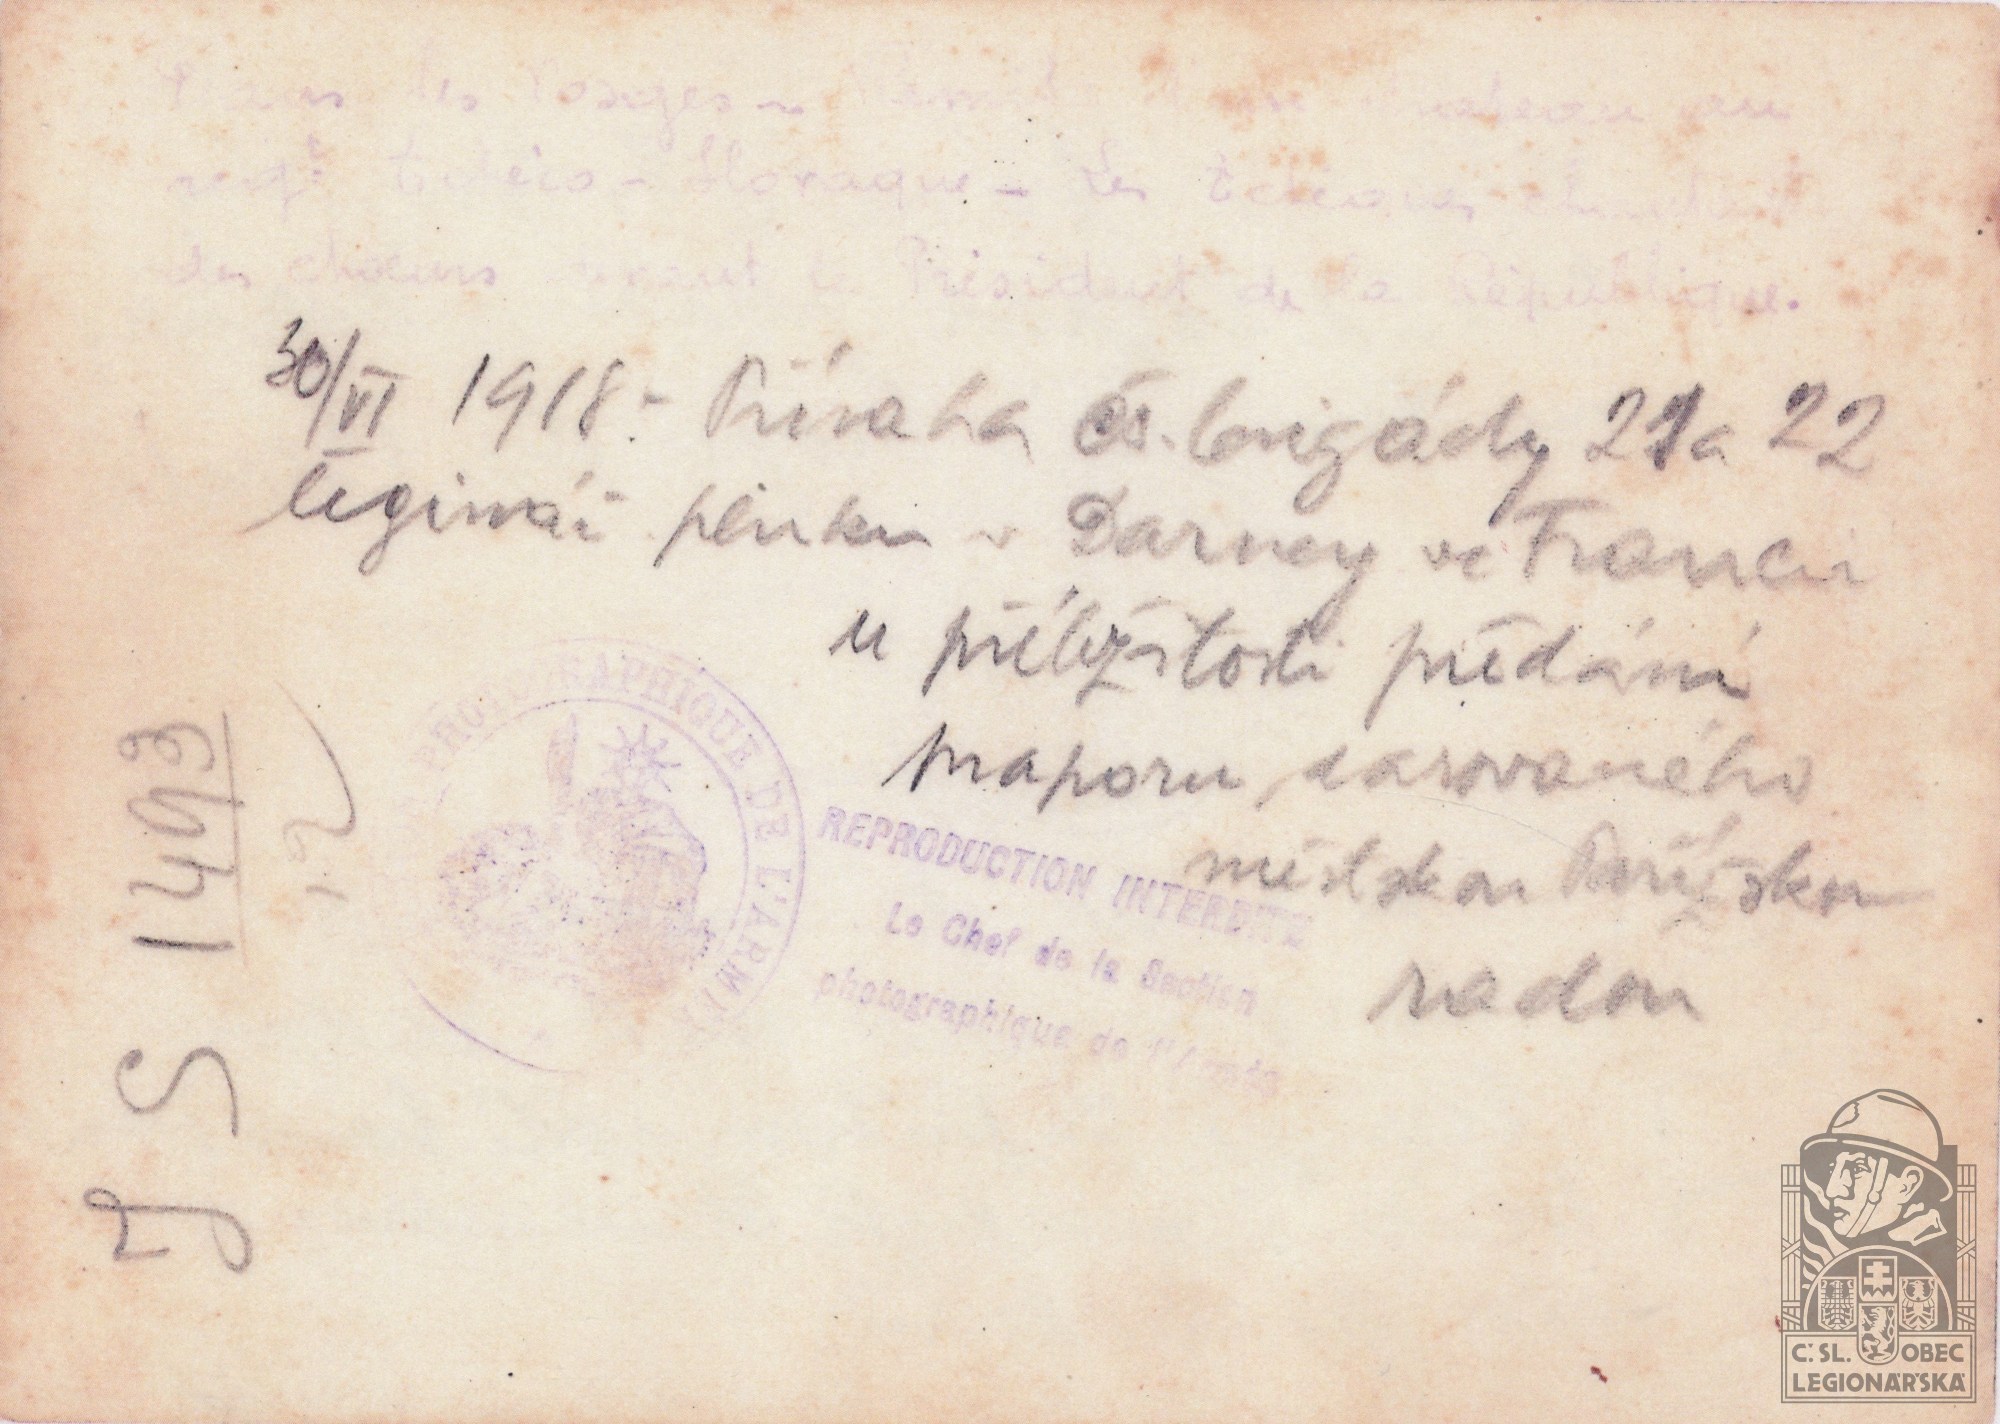 Dans les Vosges - Remise d'un drapeau au
régt tchéco-slovaque - Les tchèques chantent
des chœurs devant le Président de la République.
30/VI 1918.- Přísaha čs. brigády 21 a 22
legionář pluku v Darney ve Francii
u příležitosti předání
praporu, darovaného
městskou Pařížskou
radou
PHOTOGRAPHIQUE DE L'ARMÉE
REPRODUCTION INTERDITE
Le Chef de la Section
photographique de l'Armée
JS 1493
12
Č.SL. OBEC
LEGIONÁŘSKÁ